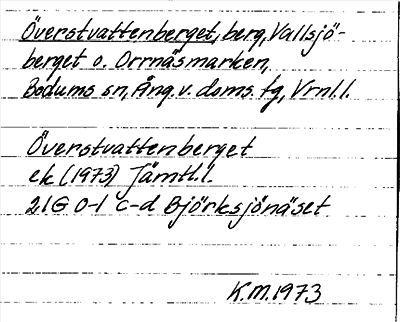 Överstvattenberget, berg, Vallsjö-
berget o. Orrnäsmarken,
Bodums sn, Ång. v. doms. fg, Vrnl. l.
Överstvattenberget
ek (1973) Jämtl. l.
21G 0-1 c-d Björksjönäset
K.M. 1973